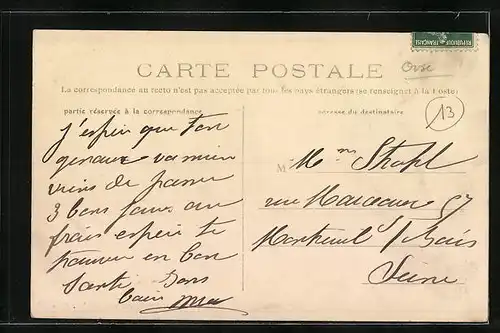 RÉPUBLIQUE FRANÇAISE
CARTE POSTALE
Oise
La correspondance au recto n'est pas acceptée par tous les pays étrangers (se renseigner à la Poste)
partie réservée à la correspondance
adresse du destinataire
13
j'espère que ton
genoux va mieux
viens de passer
3 bons jours au
frais espère te
trouver en bon
santé Bons
M
Mme Stohl
rue Marceau 57
Montreuil s/ Bois
Seine